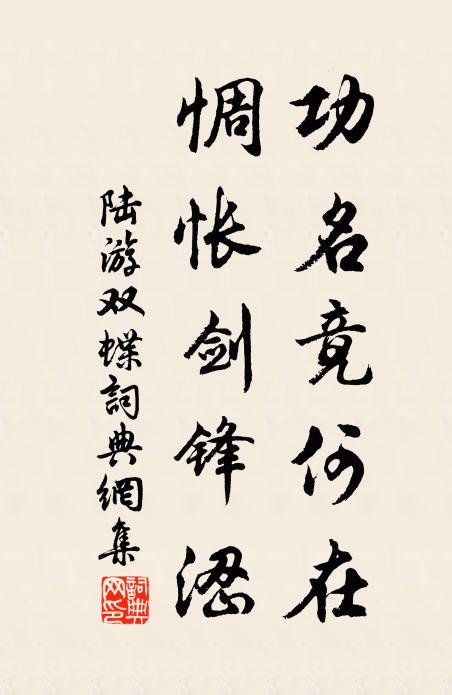 功名竟何在
惆怅剑锋涩
陆游双蝶詞典網集
詞典
网印